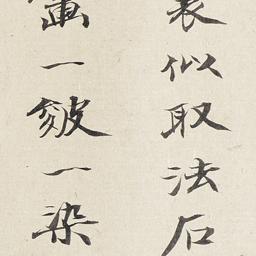 裳似取法石
畫一皴一染